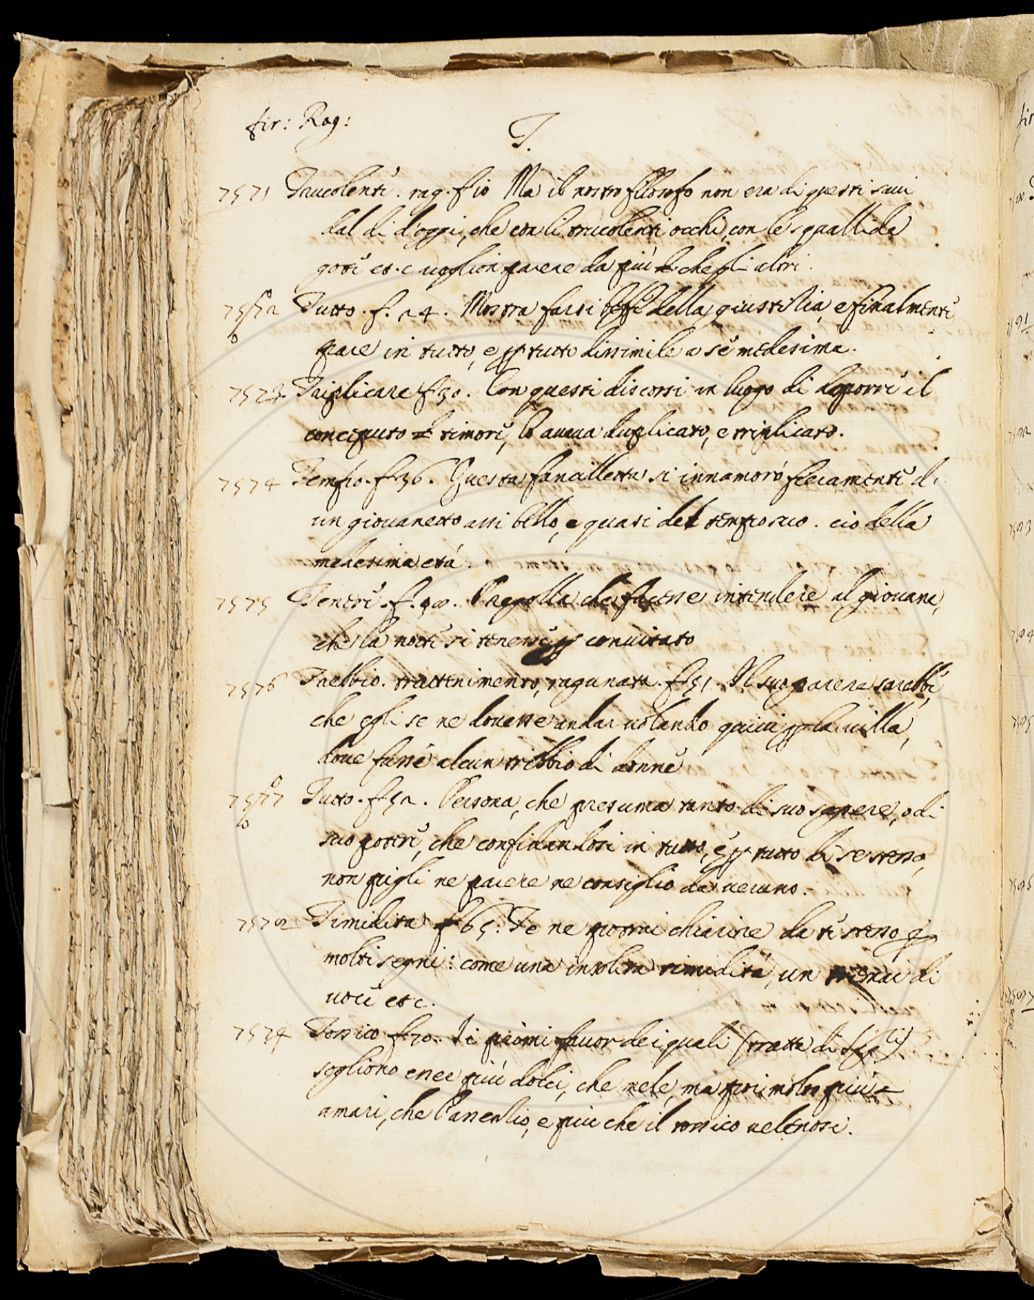 fir: Rag:
T.
7571 Truculenti. rag. f. 10 Ma il nostro filosofo non era di questi savi
dal dì d'oggi, che con li truculenti occhi, con le squallide
goti et. c voglion parere da più che gli altri.
7572 Tutto. f. 24. Mostra farsi beffe della giustitia, e finalmenti
pare in tutto, e p tutto dissimile a se medesima.
7573 Triplicare f. 30. Con questi discorsi in luogo di deporri il
conceputo timori, lo aveva duplicato, e triplicato.
7574 Tempo. f. 36. Questa fanciulletta si innamorò fieramenti di
un giovanetto assi bello, e quasi del tempo suo. cio della
medesima età.
7575 Teneri. f. 40. Pregolla che facesse intendere al giovane,
che la notti si tenessi p convitato
7576 Trebbio. trattenimento, ragunata. f. 51. Al suo parere sarebbi,
che egli se ne dovesse andar volando quivi p la villa,
dove fussi alcun trebbio di donne
7577 Tutto. f. 52. Persona, che presuma tanto di suo sapere, o di
suo poteri, che confidandosi in tutto, e p tutto di se stesso,
non pigli ne parere ne consiglio da veruno.
7578 Timidita f. 65. Te ne potrai chiarire da ti stesso p
molti segni: come una insolita timidità, un tremar di
voci et c.
7574 Tossico f. 70. I primi favor de i quali (tratta di
sogliono esser più dolci, che mele, ma poi molto più
amari, che l'assentio, e più che il tossico velenosi.